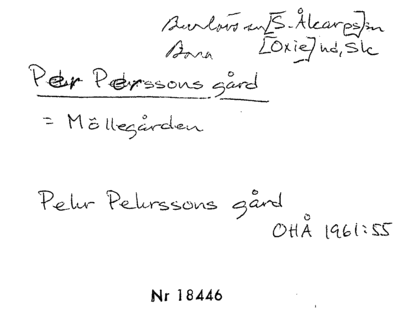 Burlövs sn [S. Åkarps] sn
Bara [Oxie] hd, Sk
Pehr Pehrssons gård
= Möllegården
Pehr Pehrssons gård
OHÅ 1961:55
Nr 18446